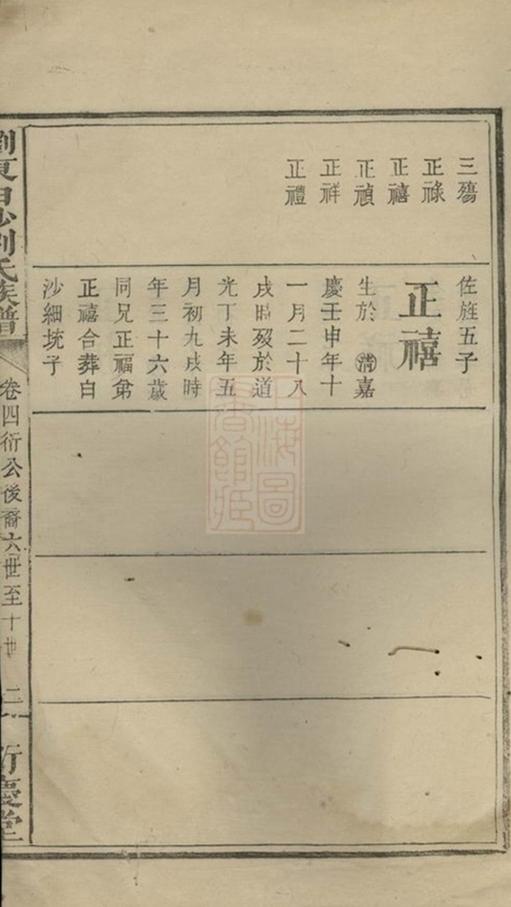 三殤
正祿
正禧
正禎
正祥
正禮
佐旌五子
正禧
生於清嘉
慶壬申年十
一月二十八
戌時歿於道
光丁未年五
月初九戌時
年三十六歲
同兄正福弟
正禧合葬白
沙細坑子
瀏東白沙劉氏族譜
卷四衍公後裔六世至十世
衍慶堂
上海圖
書館藏